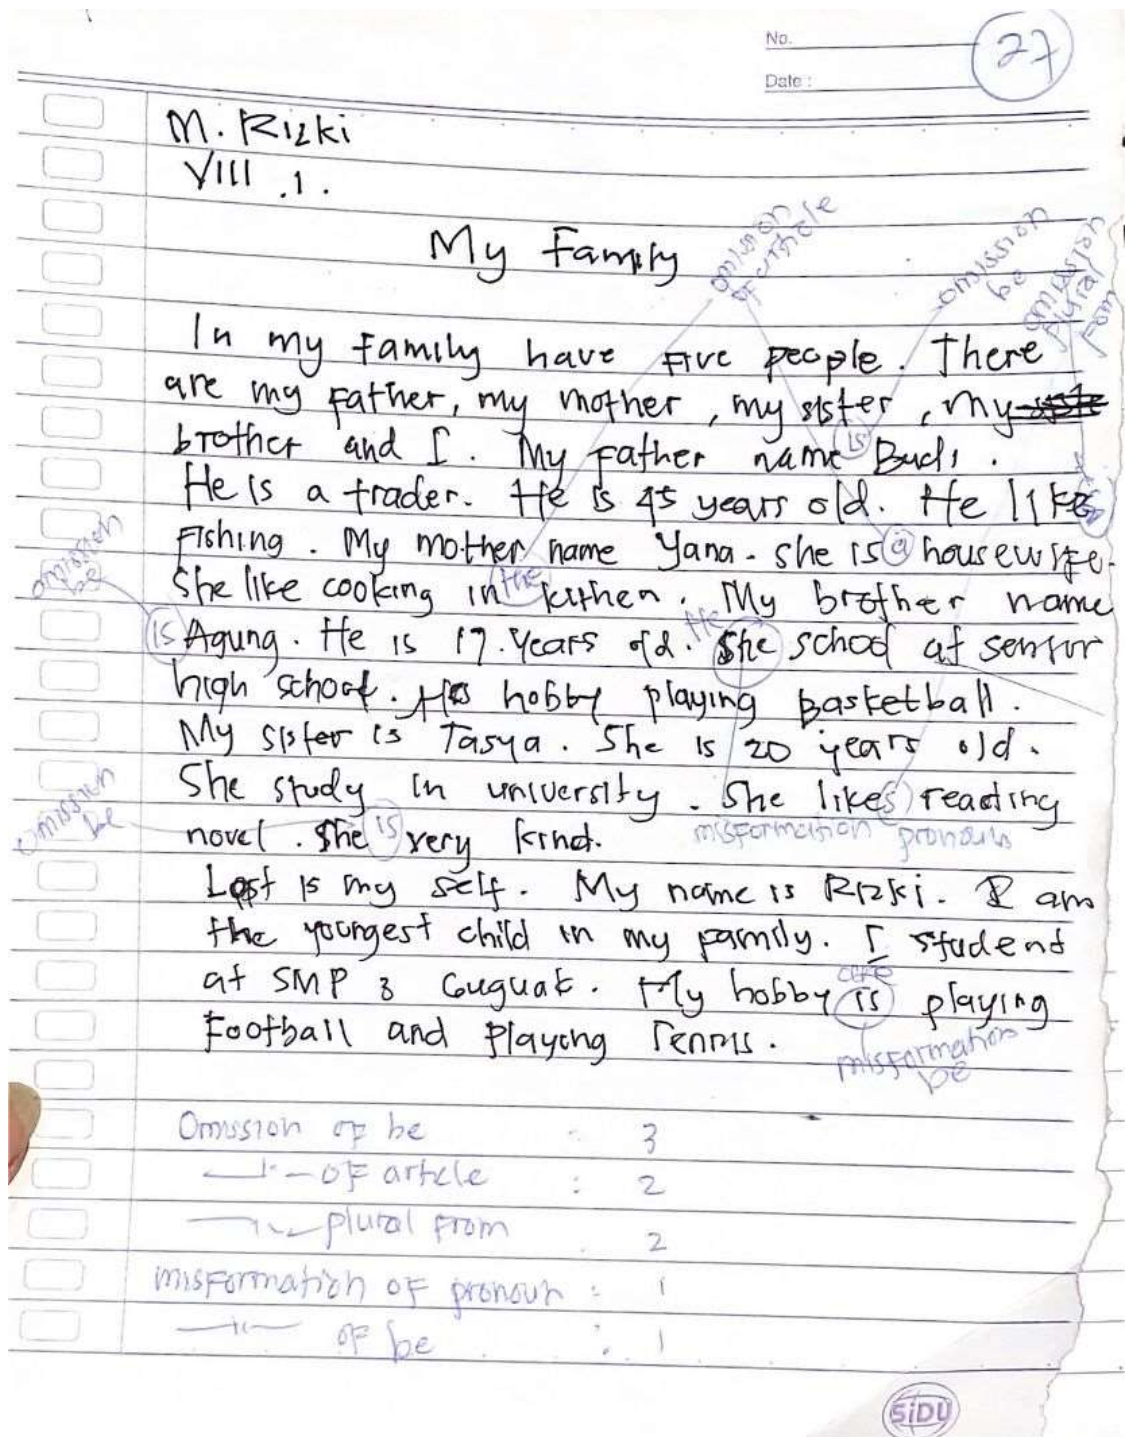 No.
27
Date :
M. Rizki
VIII .1.
omission of article
omission be
omission plural fom
My Family
In my family have five people. There
are my father, my mother, my sister, my
brother and I. My father name is Budi.
He is a trader. He is 45 years old. He likes
Fishing. My mother name Yana. she is a housewife.
omission be
She like cooking in the kithen. My brother name
is Agung. He is 17. years old. He She school at senior
high school. His hobby playing basketball.
My sister is Tasya. She is 20 years old.
She study in university. She likes reading
omission be
novel. She is very kind.
misformation pronoun
Last is my self. My name is Rizki. I am
the youngest child in my family. I student
at SMP 3 Guguak. My hobby is playing
are
Football and Playing Tennis.
misformation be
Omission of be : 3
of article : 2
plural from 2
misformation of pronoun : 1
of be : 1
SiDU